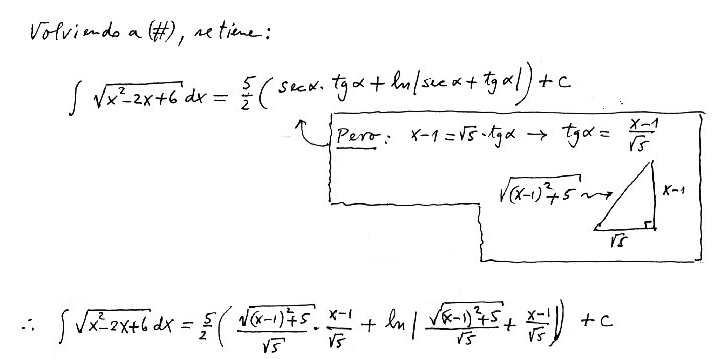 Volviendo a (#), se tiene:
∫ √(x²-2x+6) dx = 5/2 ( sec α · tg α + ln | sec α + tg α | ) + c
Pero: x-1 = √5 · tg α → tg α = (x-1)/√5
√((x-1)²+5) x-1
√5
∴ ∫ √(x²-2x+6) dx = 5/2 ( √((x-1)²+5)/√5 · (x-1)/√5 + ln | √((x-1)²+5)/√5 + (x-1)/√5 | ) + c